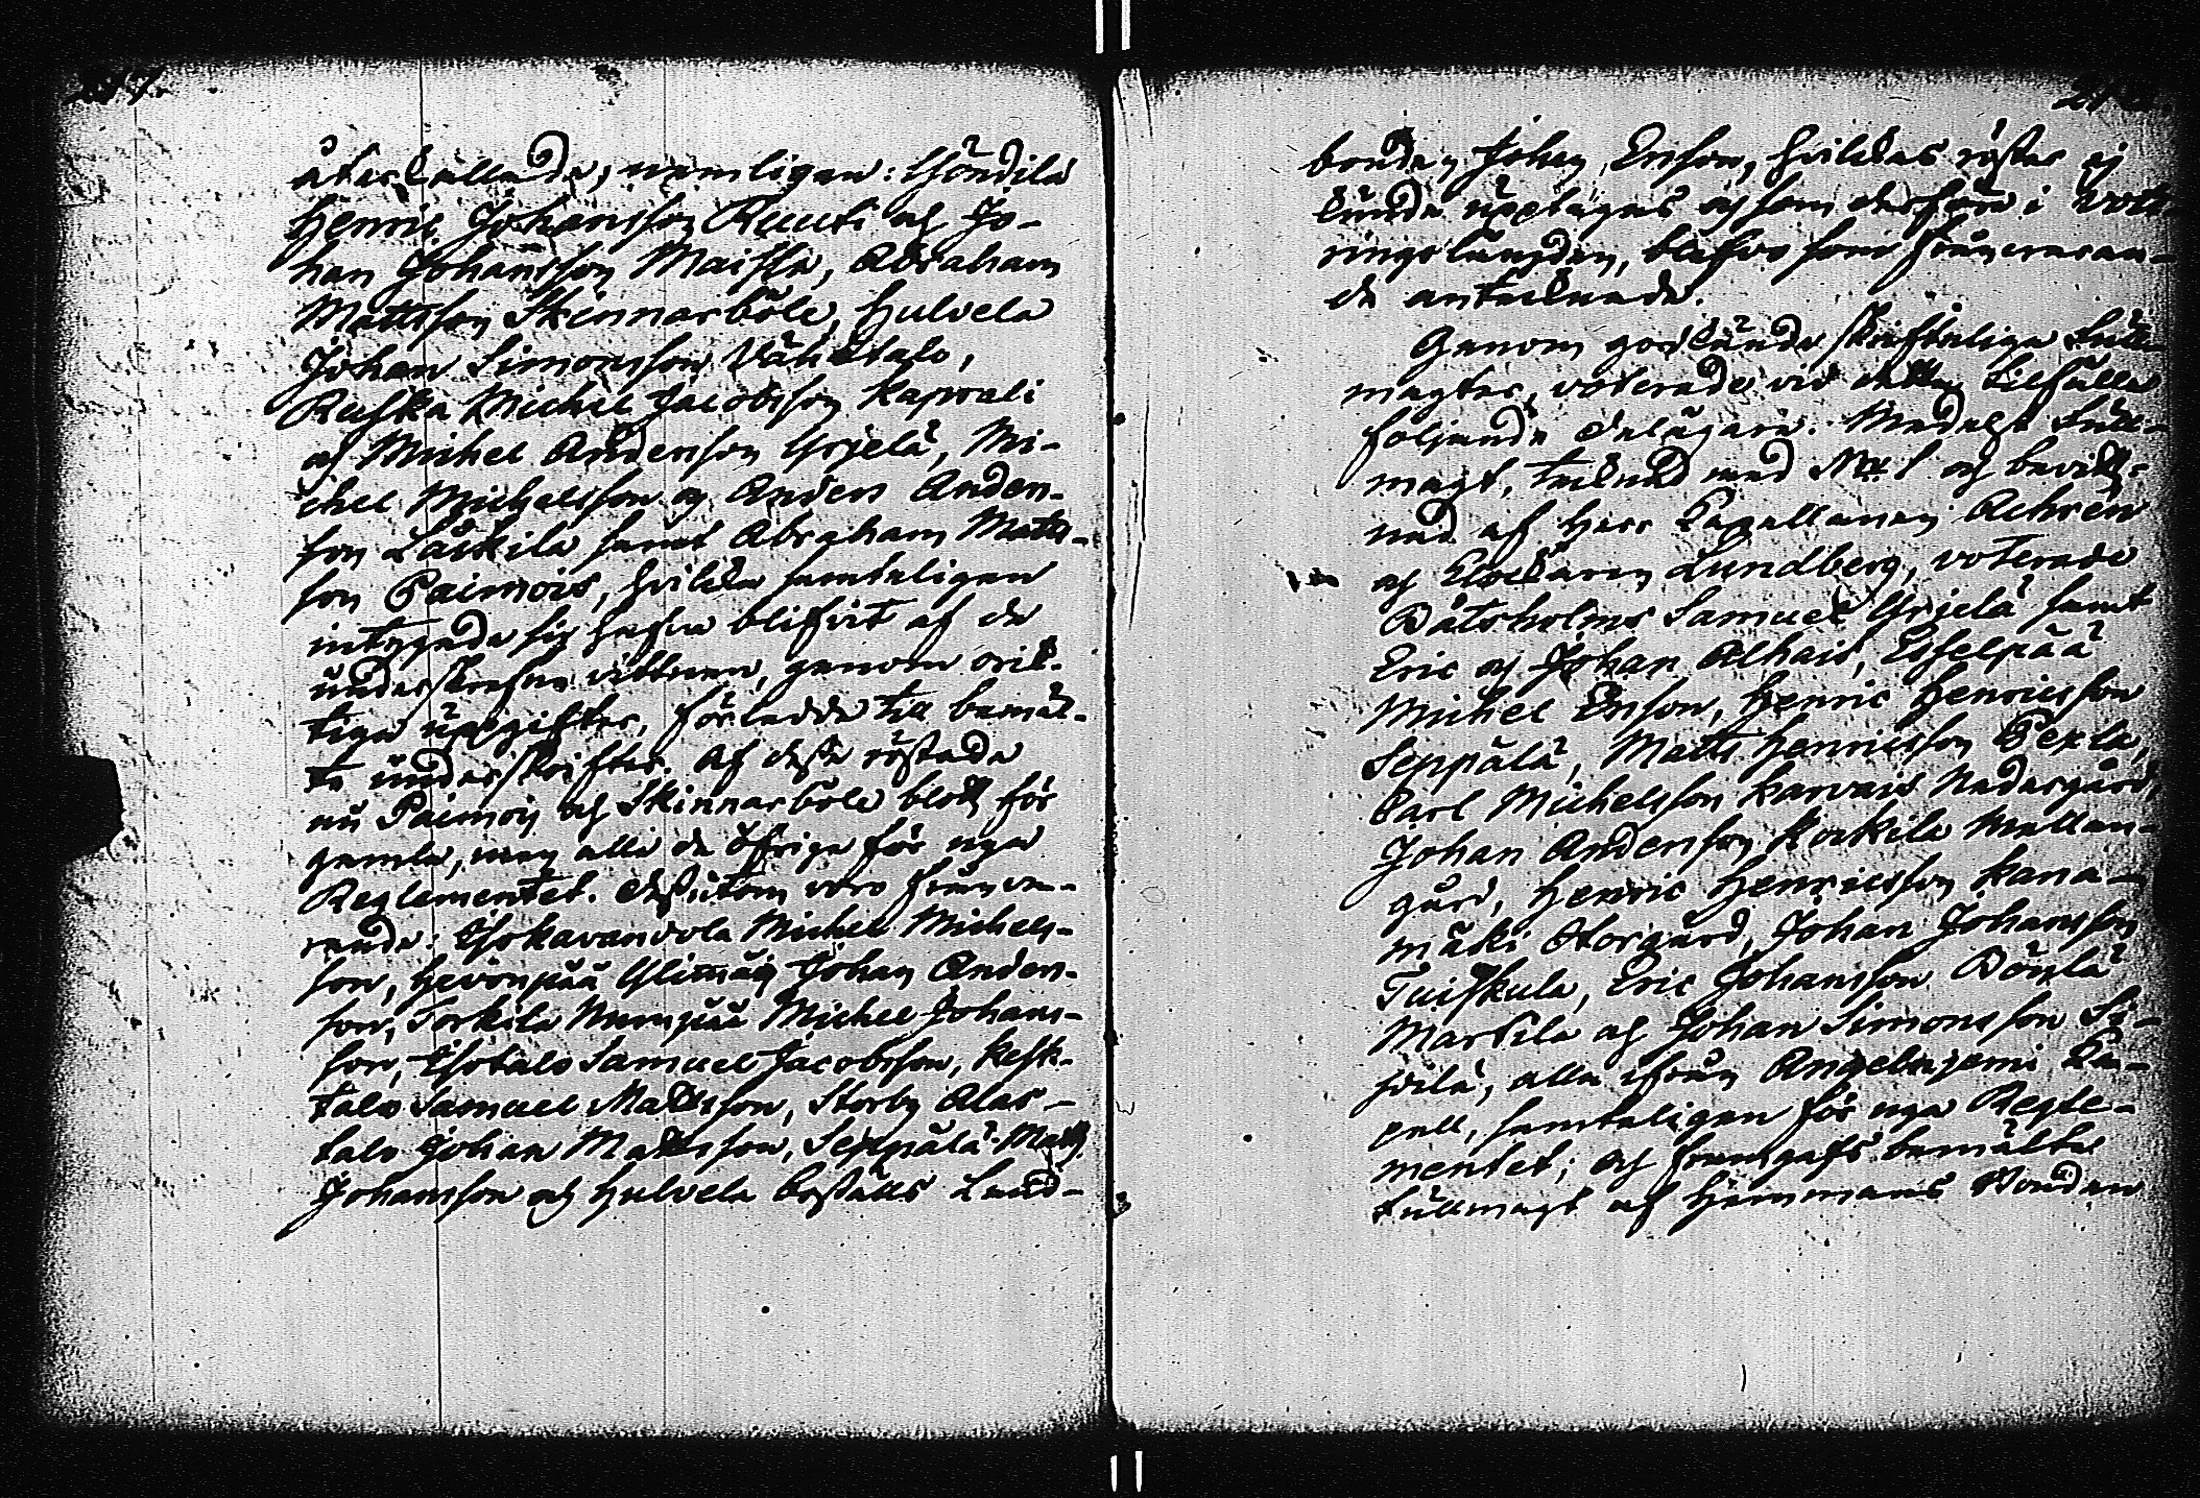 återkallade, nemligen: Yöndilä
Henric Johansson Ruuti och Jo-
han Johansson Maissa, Abraham
Mattsson Skinnarböle, Hulvela
Johan Simonsson Vähätalo,
Ruska Michel Jacobsson Kaprali
och Michel Andersson Yrjelä, Mi-
chel Michelsson och Anders Anders-
son Laukila samt Abraham Matts-
son Paimois, hvilka samteligen
intygade sig hafva blifvit af de
underskrefne vittnen, genom orik-
tiga upgifter, förledda till bemäl-
te underskrifter. Af desse röstade
nu Paimois och Skinnarböle blott för
gamla, men alla de öfriga för nya
Reglementet. Dessutom voro frånva-
rande: Isokavanvola Michel Michels-
son, Hevonpää Ylimäis Johan Anders-
son, Torkila Nurmpää Michel Johans-
son, Isotalo Samuel Jacobsson, Kesk-
talo Samuel Mattsson, Storby Alas-
talo Johan Mattsson, Seppälä Matts
Johansson och Hulvela Boställs Land-
bonden Johan Ersson, hvilkas röster ej
kunde upptagas och som derföre i vote-
ringslängden, blefvo som frånvaran-
de antecknade.
Genom godkände skrifteliga Full-
magter, voterade vid detta tillfälle
följande delägare. Medelst Full-
magt, tecknad med N:o 1 och bevitt-
nad af Herr Capellanen Achrén
och Klockaren Lundberg, voterade
Båtsholms Samuel Yrjelä samt
Eric och Johan Alhais, Esselpää
Michel Ersson, Henric Henricsson
Seppälä, Matts Henricsson Pexla,
Carl Michelsson Karvais Nedergård,
Johan Andersson Korkila Mellan-
gård, Henric Henricsson Kana-
mäki Storgård, Johan Johansson
Tuiskula, Eric Johansson Böylä
Markila och Johan Simonsson Si-
pilä, alla ifrån Angelniemi Ca-
pell, samteligen för nya Regle-
mentet; och framgafs bemälte
fullmagt af Hemmans Bonden